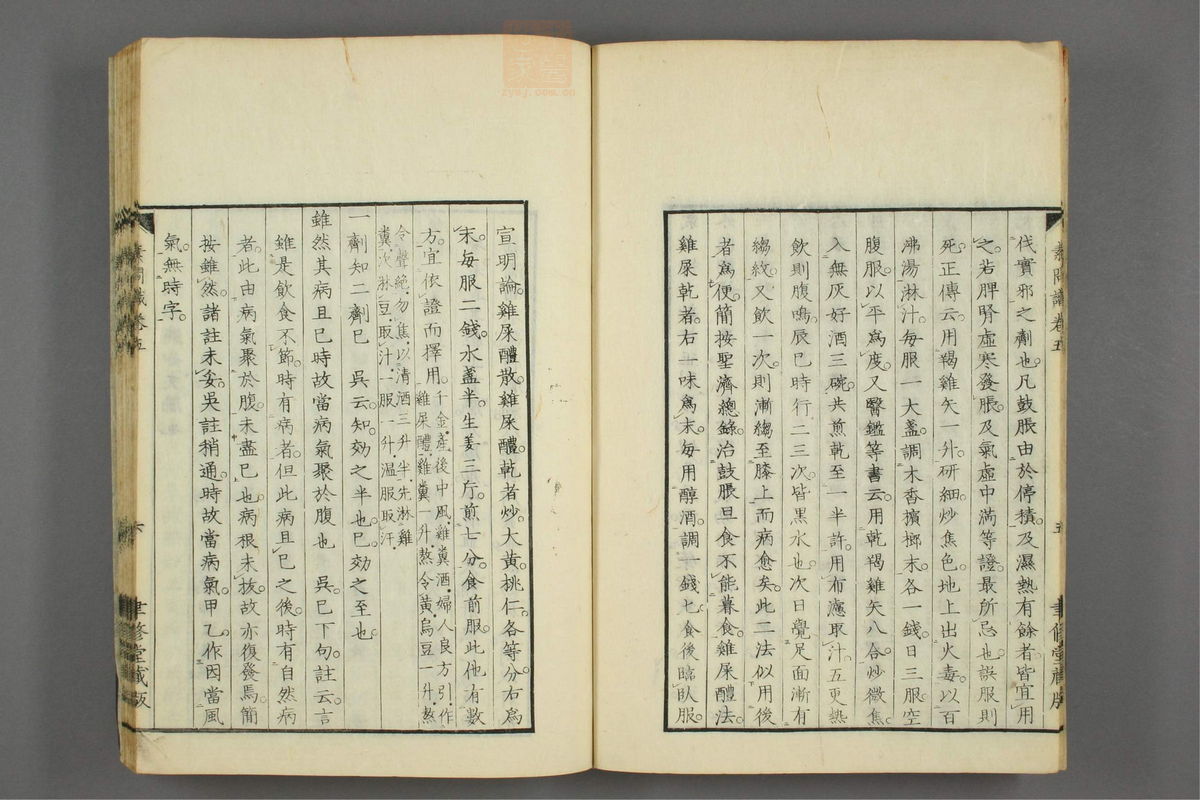 伐實邪之劑也。凡鼓脹由於停積。及濕熱有餘者皆宜用
之。若脾腎虛寒發脹。及氣虛中滿等證。最所忌也。誤服則
死。正傳云。用羯雞矢一升。研細。炒焦色。地上出火毒。以百
沸湯淋汁。每服一大盞。調木香檳榔末各一錢。日三服。空
腹服。以平爲度。又醫鑑等書云。用乾羯雞矢八合。炒微焦。
入無灰好酒三碗。共煎乾至一半許。用布濾取汁。五更熱
飲則腹鳴。辰巳時行二三次。皆黑水也。次日覺足面漸有
縐紋。又飲一次。則漸縐至膝上而病愈矣。此二法似用後
者爲便。簡按聖濟總錄。治鼓脹旦食不能暮食。雞屎醴法。
雞屎乾者。右一味爲末。每用醇酒。調一錢七。食後臨臥服。
素問識卷五
五
聿修堂藏版
宣明論。雞屎醴散。雞屎醴。乾者炒。大黃。桃仁。各等分。右爲
末。每服二錢。水盞半。生姜三片。煎七分。食前服。此他有數
方。宜依證而擇用。千金。產後中風。雞糞酒。婦人良方引。作
雞屎醴。雞糞一升。熬令黃。烏豆一升。熬
令聲絕。勿焦。以清酒三升半。先淋雞
糞。次淋豆。取汁。一服一升。温服取汗。
一劑知二劑已 吳云。知。効之半也。已。効之至也
雖然其病且已時故當病氣聚於腹也 吳巳下句。註云。言
雖是飲食不節。時有病者。但此病且已之後。時有自然病
者。此由病氣聚於腹。未盡已也。病根未拔。故亦復發焉。簡
按雖然。諸註未妥。吳註稍通。時故當病氣。甲乙作因當風
氣。無時字。
素問識卷五
六
聿修堂藏版
zysj.com.cn